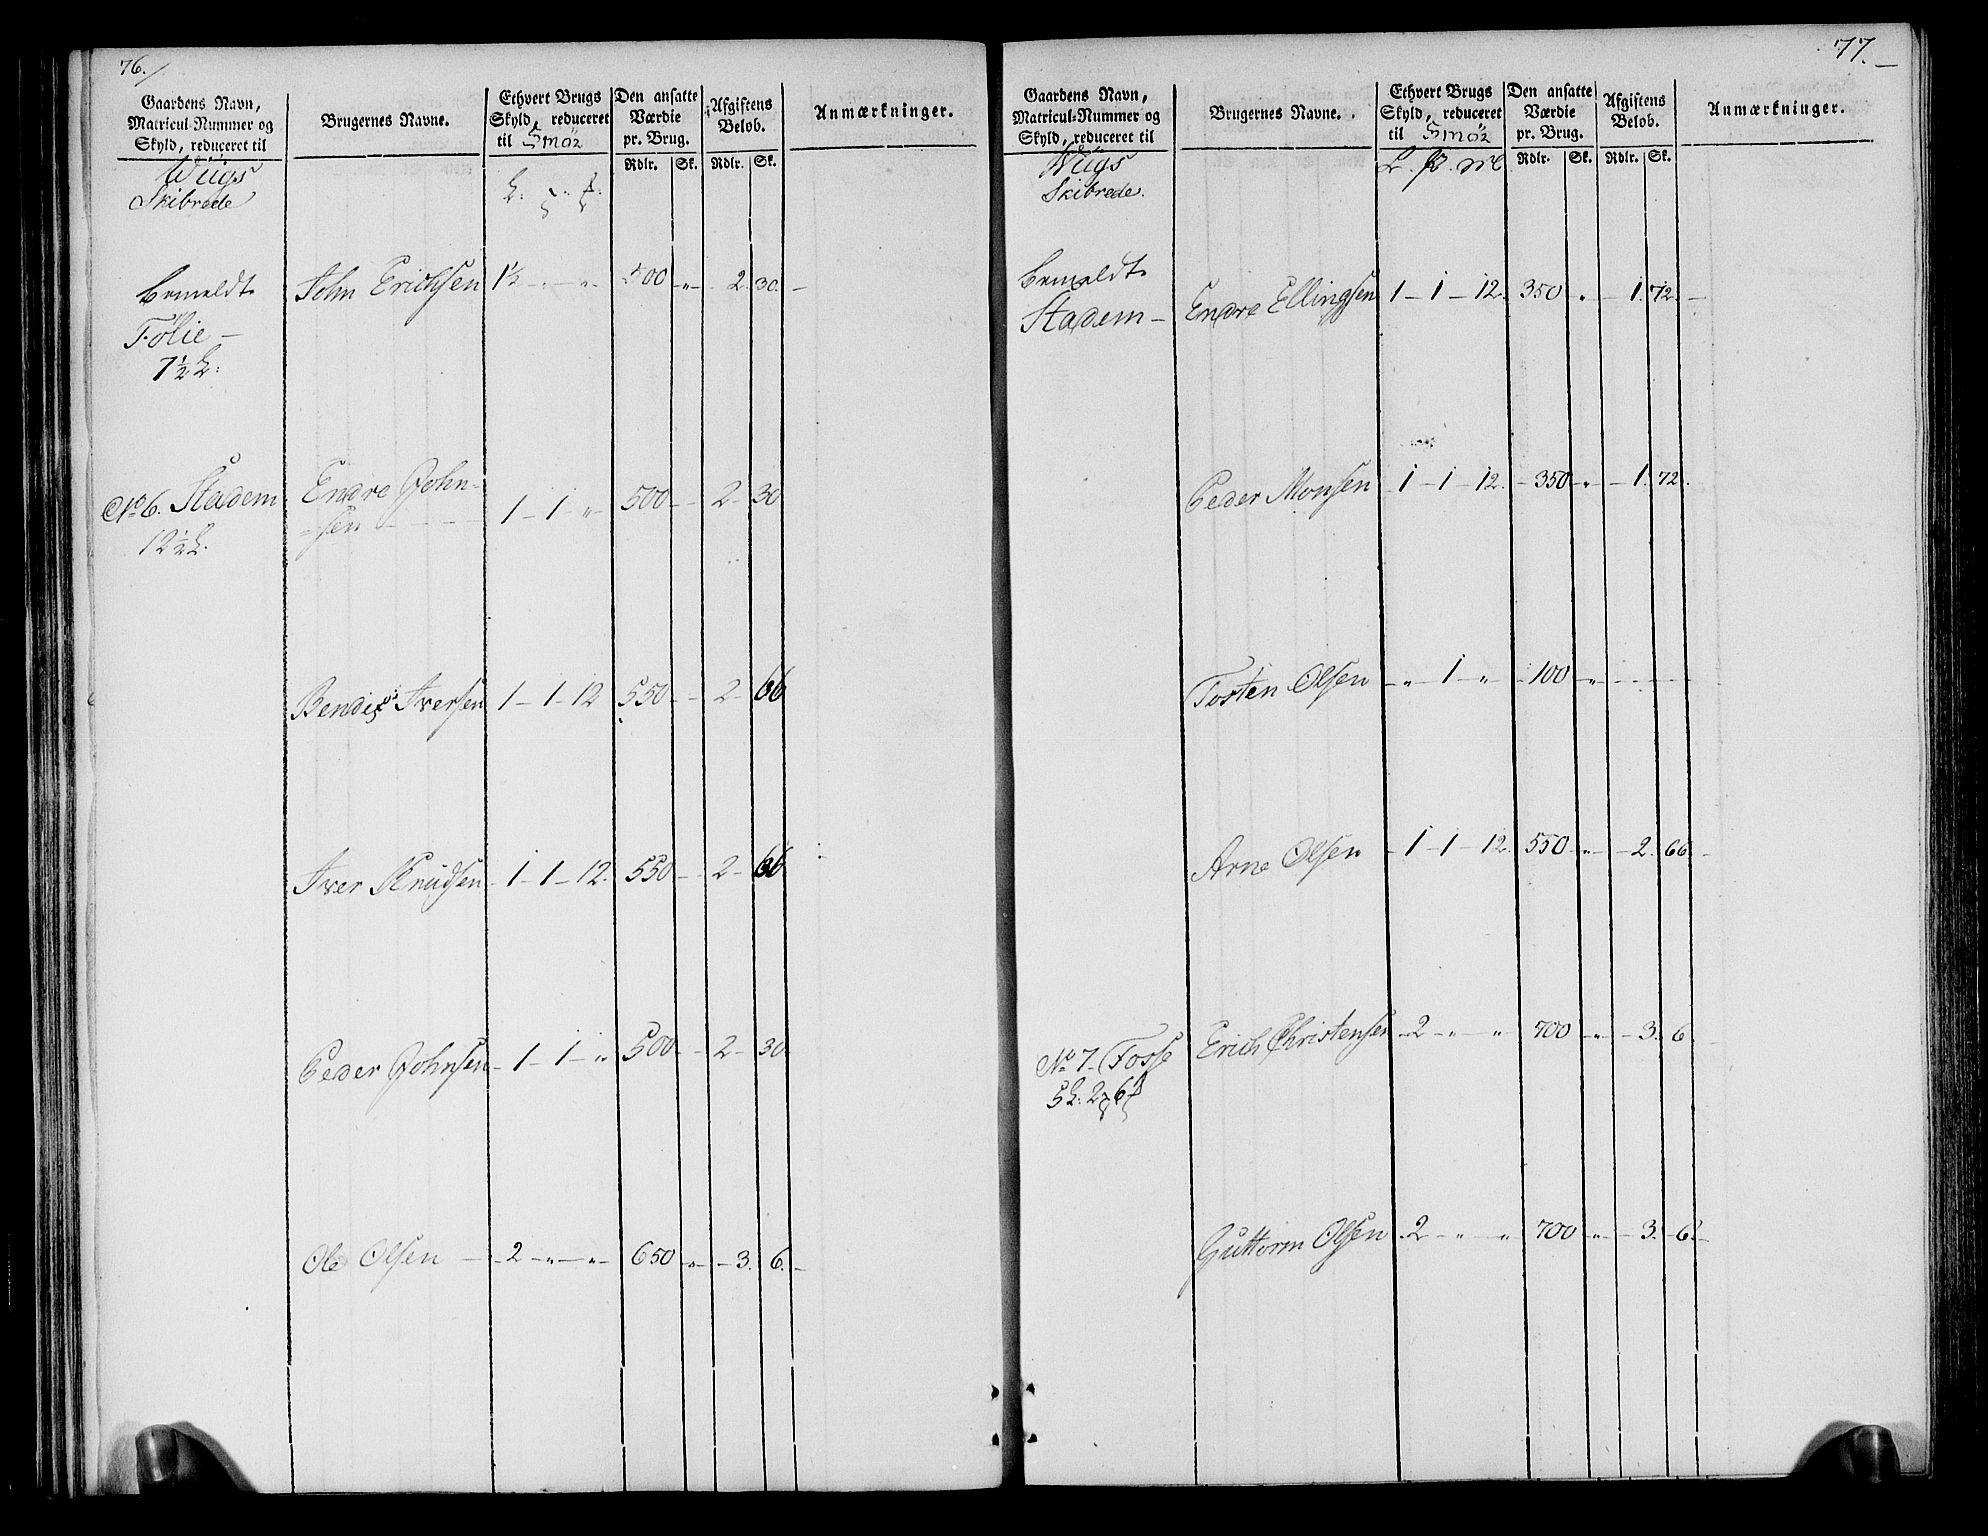 76.
Gaardens Navn, Matricul-Nummer og Skyld, reduceret til
Brugernes Navne.
Ethvert Brugs Skyld, reduceret til Smör
Den ansatte Værdie pr. Brug.
Afgiftens Beløb.
Anmærkninger.
Rdlr. Sk. Rdlr. Sk.
Wiigs
Skibrede
Bemeldte John Erichsen 1½ „ „ 500 „ 2 30.
Følie
7½ L:
No 6. Stadem Endre John-
sen 1 - 1 - „ 500 - 2 - 30
12½ L.
Bendix Iversen 1 - 1 - 12 550 - 2 - 66
Iver Knudsen 1 - 1 - 12. 550 - 2 - 66
Peder Johnsen 1 - 1 - „ 500 - 2 - 30
Ole Olsen 2 - „ - „ 650 „ 3. 6.
77.
Gaardens Navn, Matricul-Nummer og Skyld, reduceret til
Brugernes Navne.
Ethvert Brugs Skyld, reduceret til Smör
Den ansatte Værdie pr. Brug.
Afgiftens Beløb.
Anmærkninger.
Rdlr. Sk. Rdlr. Sk.
Wiigs
Skibrede.
Bemeldte
Stadem - Endre Ellingsen 1 - 1 - 12. 350 „ 1. 72.
Peder Monsen 1 - 1 - 12. 350 „ 1. 72.
Tosten Olsen „ 1 - „ 100 „
Arne Olsen 1 - 1 - 12. 550 „ 2. 66
No 7. Fosse Erich Christensen 2 - „ - „ 700 „ 3. 6
Guttorm Olsen 2 - „ - „ 700 „ 3. 6.